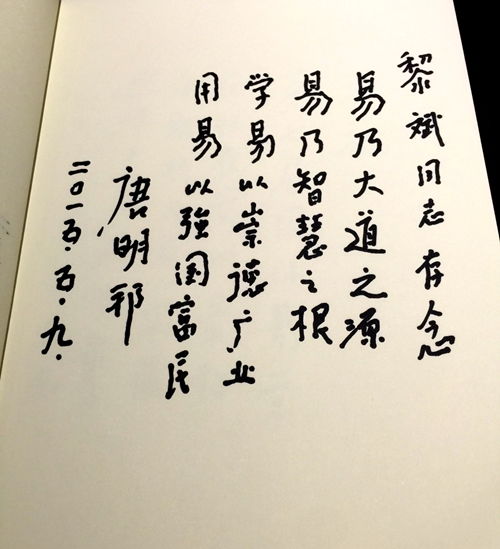 黎斌同志存念
易乃大道之源
易乃智慧之根
学易以崇德广业
用易以強国富民
唐明邦
二〇一五.五.九.